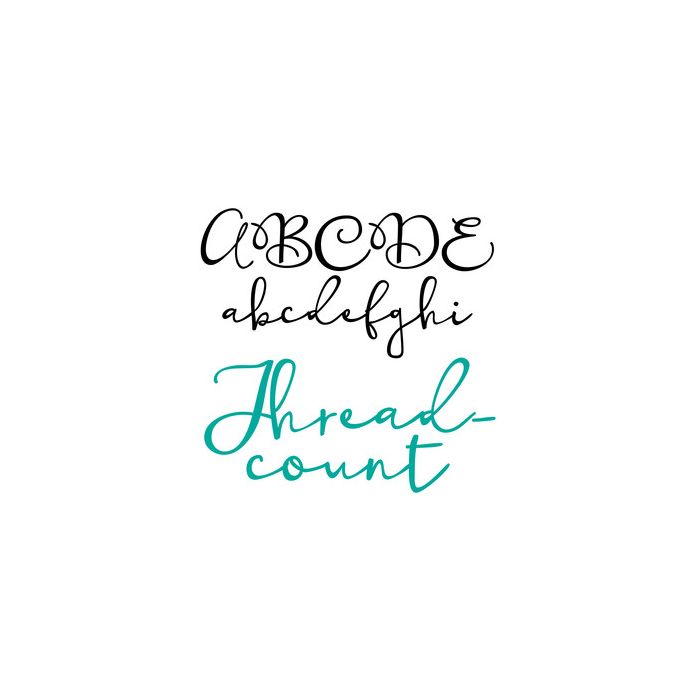 ABCDE
abcdefghi
Thread-
count